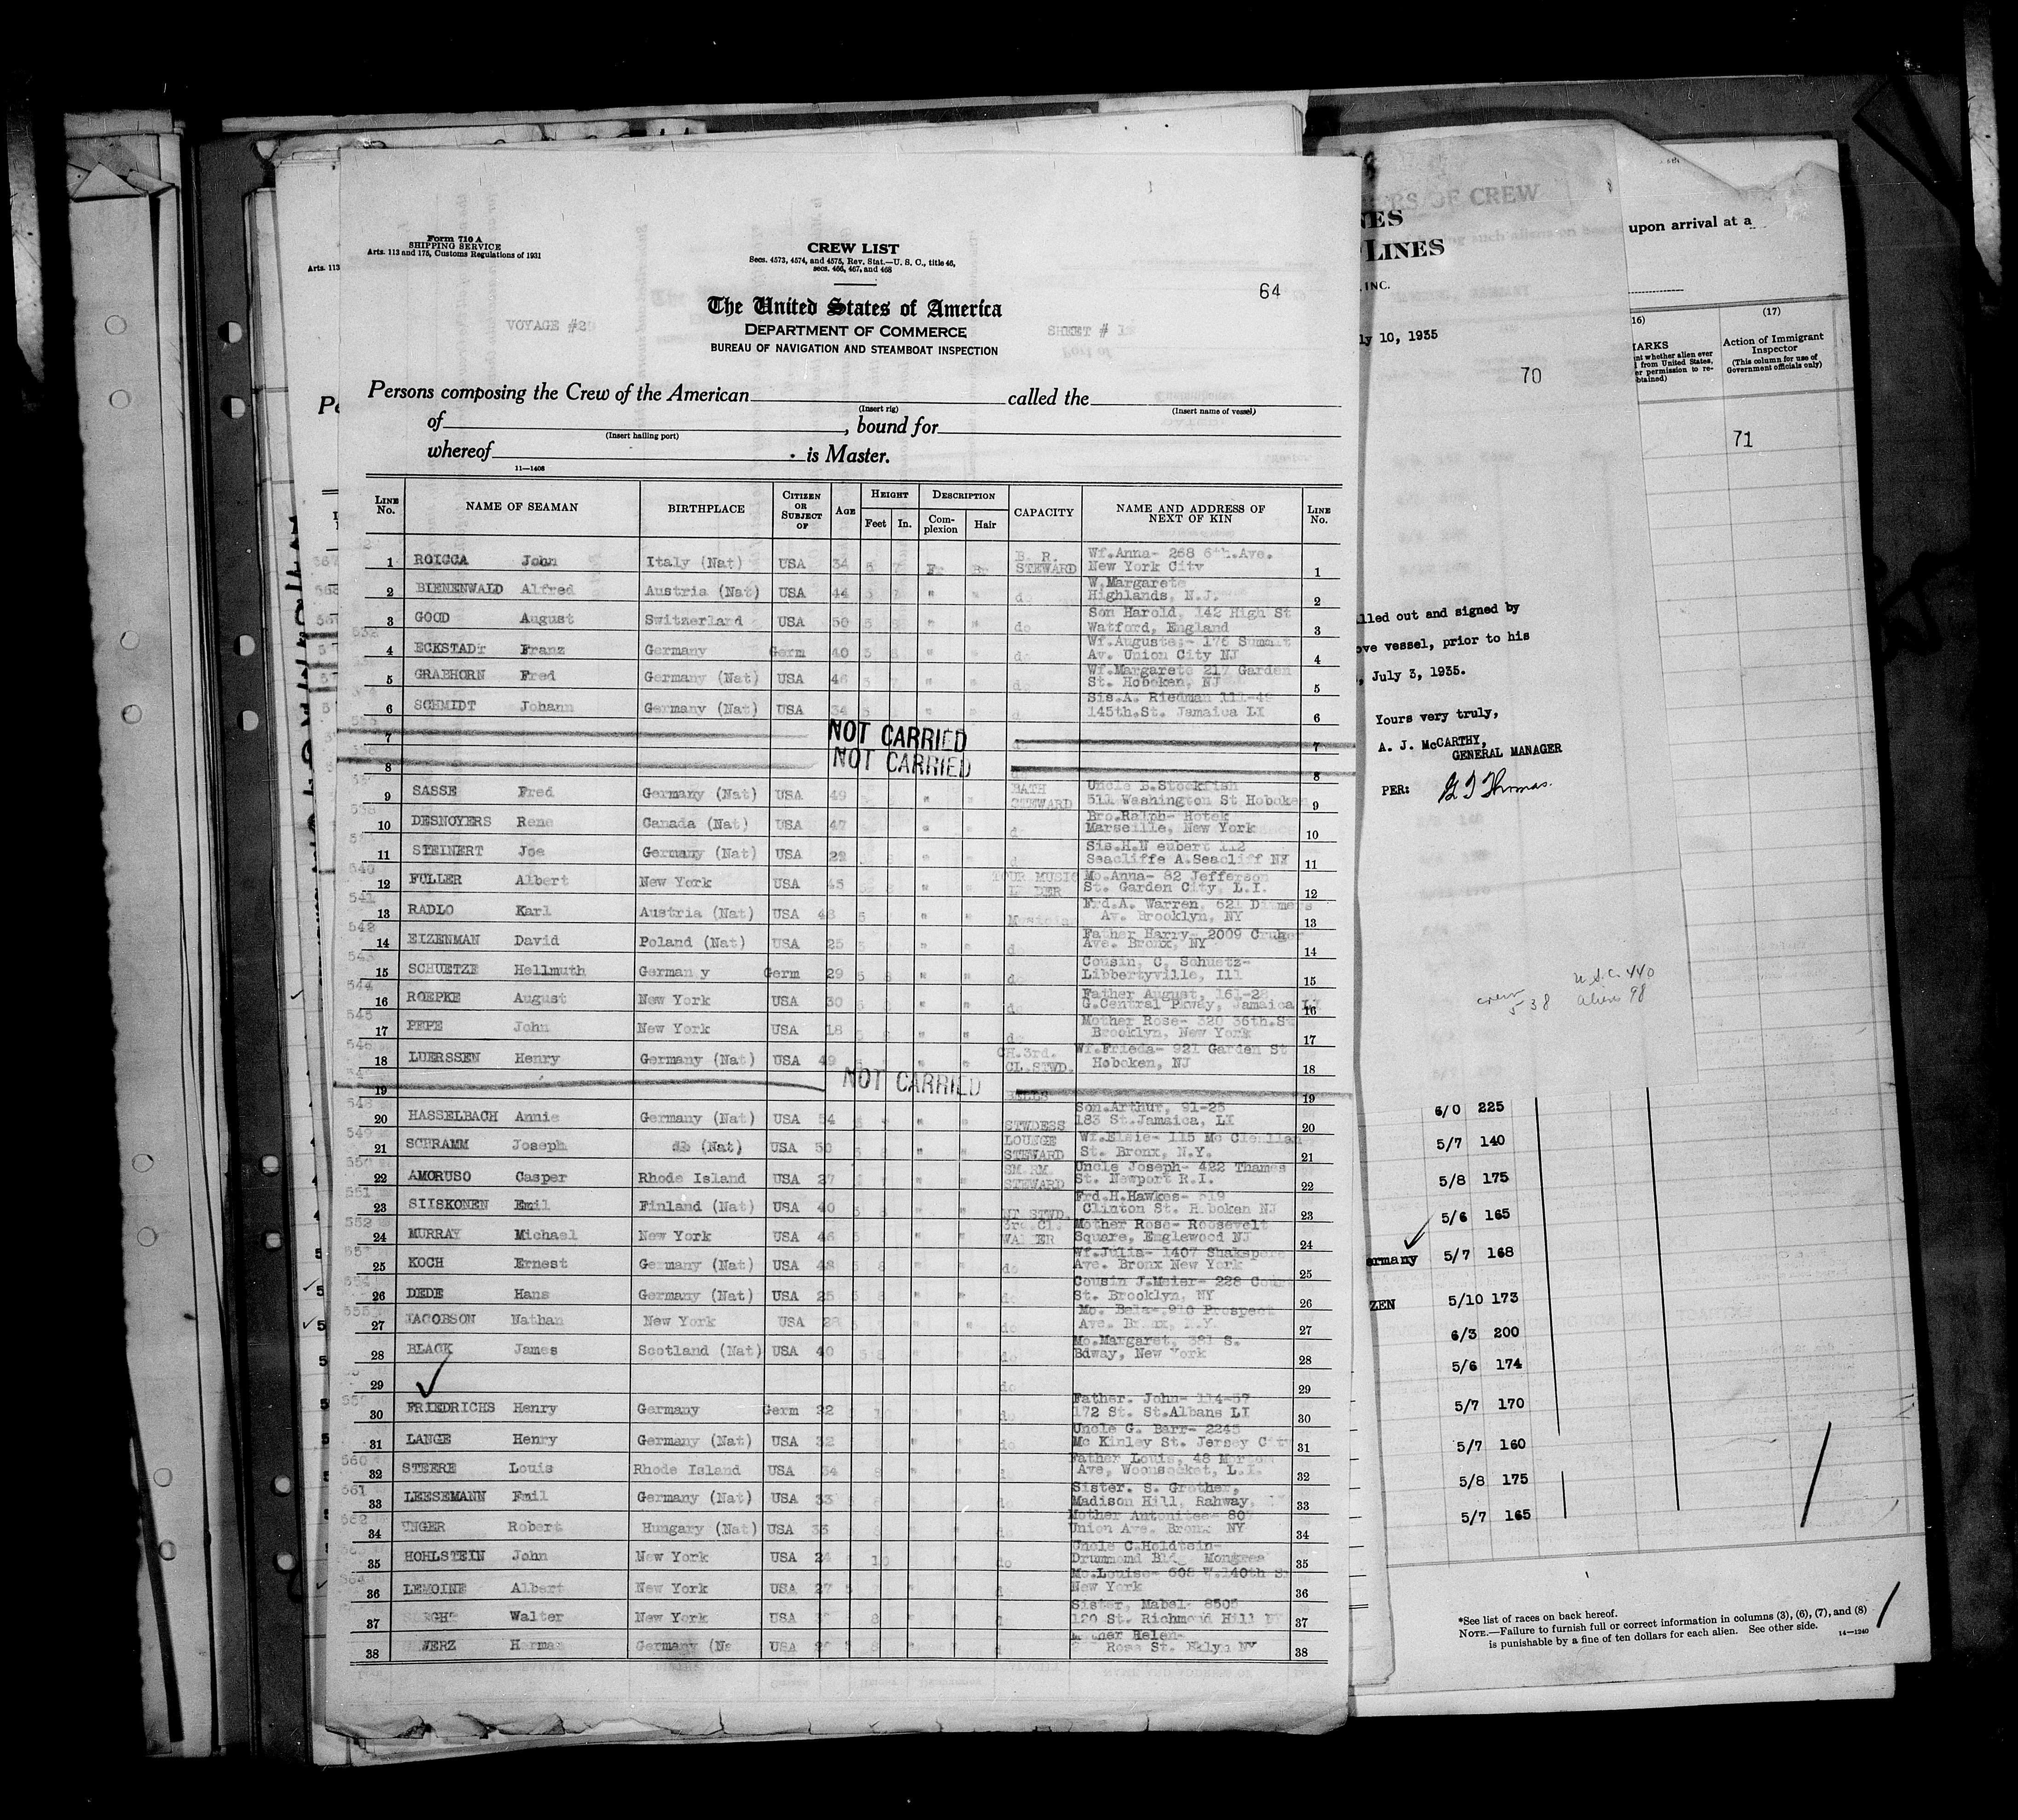 Form 710 A
SHIPPING SERVICE
Arts. 113 and 175, Customs Regulations of 1931
Arts. 113
CREW LIST
Secs. 4573, 4574, and 4575, Rev. Stat.—U. S. C., title 46,
secs. 466, 467, and 468
64
The United States of America
DEPARTMENT OF COMMERCE
BUREAU OF NAVIGATION AND STEAMBOAT INSPECTION
VOYAGE #2
SHEET #
Persons composing the Crew of the American called the
(Insert rig) (Insert name of vessel)
of , bound for
(Insert hailing port)
whereof is Master.
11—1406
LINE No. NAME OF SEAMAN BIRTHPLACE CITIZEN OR SUBJECT OF AGE HEIGHT Feet In. DESCRIPTION Complexion Hair CAPACITY NAME AND ADDRESS OF NEXT OF KIN LINE No.
1 ROIGGA John Italy (Nat) USA 34 5 7 Fr Br B. R. STEWARD Wf.Anna- 268 6th.Ave. New York City 1
2 BIENENWALD Alfred Austria (Nat) USA 44 5 7 " " do W.Margarete Highlands, N.J. 2
3 GOOD August Switzerland USA 50 5 " " do Son Harold, 142 High St Watford, England 3
4 ECKSTADT Franz Germany Germ 40 5 " " do Wf.Auguste;- 176 Summit Av. Union City NJ 4
5 GRAEHORN Fred Germany (Nat) USA 46 5 7 " " do Wf.Margarete 217 Garden St. Hoboken, NJ 5
6 SCHMIDT Johann Germany (Nat) USA 34 5 " " Sis.A. Riedman 111-49 145th.St. Jamaica LI 6
7 NOT CARRIED 7
8 NOT CARRIED 8
9 SASSE Fred Germany (Nat) USA 49 " BATH STEWARD Uncle B.Stockfish 511 Washington St Hoboken 9
10 DESNOYERS Rene Canada (Nat) USA 47 " do Bro.Ralph- Hotek Marseille, New York 10
11 STEINERT Joe Germany (Nat) USA 22 " " Sis.H.N eubert 112 Seacliffe A.Seacliff NY 11
12 FULLER Albert New York USA 45 " " TOUR MUSIC Mo.Anna- 82 Jefferson St. Garden City, L.I. 12
13 RADLO Karl Austria (Nat) USA 48 5 " " Musician Frd.A. Warren, 621 Av. Brooklyn, NY 13
14 EIZENMAN David Poland (Nat) USA 25 " " Father Harry- 2009 Cruger Ave. Bronx, NY 14
15 SCHUETZE Hellmuth German y Germ 29 5 8 " " do Cousin, C, Schuetz- Libbertyville, Ill 15
16 ROEPKE August New York USA 30 " " do Father August, 161-28 G.Central Pkway, Jamaica LI 16
17 PEPE John New York USA 18 " " do Mother Rose- 320 36th.St Brooklyn, New York 17
18 LUERSSEN Henry Germany (Nat) USA 49 " " CH.3rd. CL.STWD. Wf.Frieda- 921 Garden St Hoboken, NJ 18
19 NOT CARRIED 19
20 HASSELBACH Annie Germany (Nat) USA 54 " " STWDESS Son.Arthur, 91-25 183 St.Jamaica, LI 20
21 SCHRAMM Joseph do (Nat) USA 50 " " LOUNGE STEWARD Wf.Elsie- 115 Mc Clellan St. Bronx, N.Y. 21
22 AMORUSO Casper Rhode Island USA 27 " " SM.RM. STEWARD Uncle Joseph- 422 Thames St. Newport R.I. 22
23 SIISKONEN Emil Finland (Nat) USA 40 5 8 " " NT STWD. Frd.H.Hawkes- 519 Clinton St. Hoboken NJ 23
24 MURRAY Michael New York USA 46 5 " " 3rd.Cl. WAITER Mother Rose- Roosevelt Square, Englewood NJ 24
25 KOCH Ernest Germany (Nat) USA 48 5 8 " " do Wf.Julia- 1407 Shakspere Ave. Bronx New York 25
26 DEDE Hans Germany (Nat) USA 25 5 8 " " do Cousin J.Meier- 228 St. Brooklyn, NY 26
27 JACOBSON Nathan New York USA 28 " do Mo. Bela- 910 Prospect Ave. Bronx, N.Y. 27
28 BLACK James Scotland (Nat) USA 40 5 8 do Mo.Margaret, 321 S. Bdway, New York 28
29 do 29
30 FRIEDRICHS Henry Germany Germ 22 10 do Father. John- 114-57 172 St. St.Albans LI 30
31 LANGE Henry Germany (Nat) USA 32 " " do Uncle G. Barr- 2245 Mc Kinley St. Jersey City 31
32 STEERE Louis Rhode Island USA 34 Father Louis, 48 Ave, Woonsocket, L.I. 32
33 LEESEMANN Emil Germany (Nat) USA 33 do Sister. S. Grother, Madison Hill, Rahway, 33
34 UNGER Robert Hungary (Nat) USA 35 do Mother Antonites- 807 Union Ave. Bronx NY 34
35 HOHLSTEIN John New York USA 24 10 do Uncle C.Holdtein- Drummond 35
36 LEMOINE Albert New York USA 27 5 Mo.Louise- 608 W.140th New York 36
37 Walter New York USA 8 Sister, Mabel- 8505 120 St. Richmond Hill 37
38 Herman Germany USA Helen- Rose St. Bklyn NY 38
OF CREW
upon arrival at a
LINES
, INC.
10, 1935
70
71
(17)
Action of Immigrant Inspector
(This column for use of Government officials only)
lled out and signed by
ove vessel, prior to his
, July 3, 1935.
Yours very truly,
A. J. McCARTHY,
GENERAL MANAGER
PER: G J Thomas.
crew 538
U.S.C. 440
aliens 98
6/0 225
5/7 140
5/8 175
5/6 165
ermany 5/7 168
ZEN 5/10 173
6/3 200
5/6 174
5/7 170
5/7 160
5/8 175
5/7 165
*See list of races on back hereof.
NOTE.—Failure to furnish full or correct information in columns (3), (6), (7), and (8)
is punishable by a fine of ten dollars for each alien. See other side. 14—1240